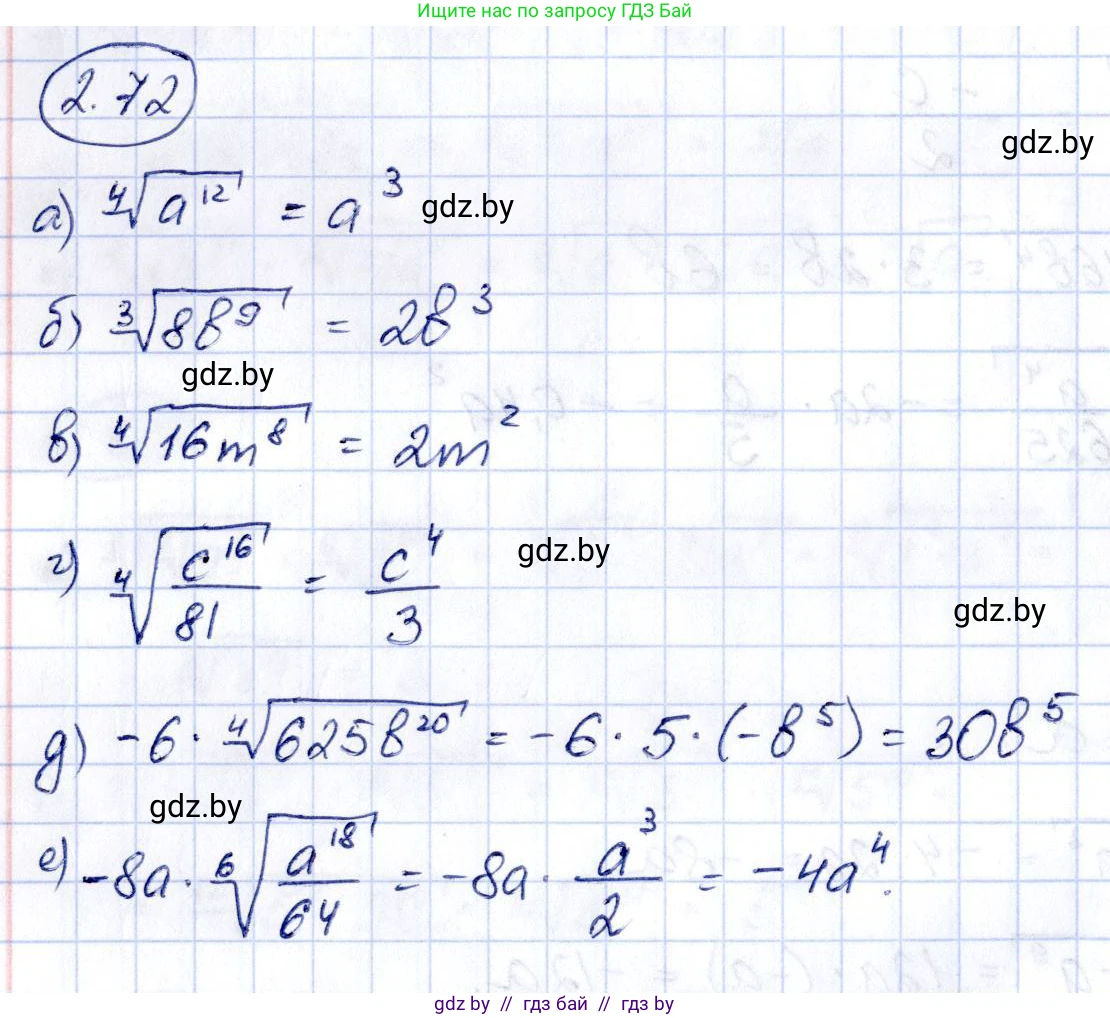 Ищите нас по запросу ГДЗ Бай
2.72
gdz.by
а) ∜(a¹²) = a³ gdz.by
б) ∛(8b⁹) = 2b³
gdz.by
в) ∜(16m⁸) = 2m²
г) ∜(c¹⁶/81) = c⁴/3 gdz.by
gdz.by
д) -6 · ∜(625b²⁰) = -6 · 5 · (-b⁵) = 30b⁵
gdz.by
е) -8a · ⁶√(a¹⁸/64) = -8a · a³/2 = -4a⁴.
gdz.by // гдз бай // гдз by